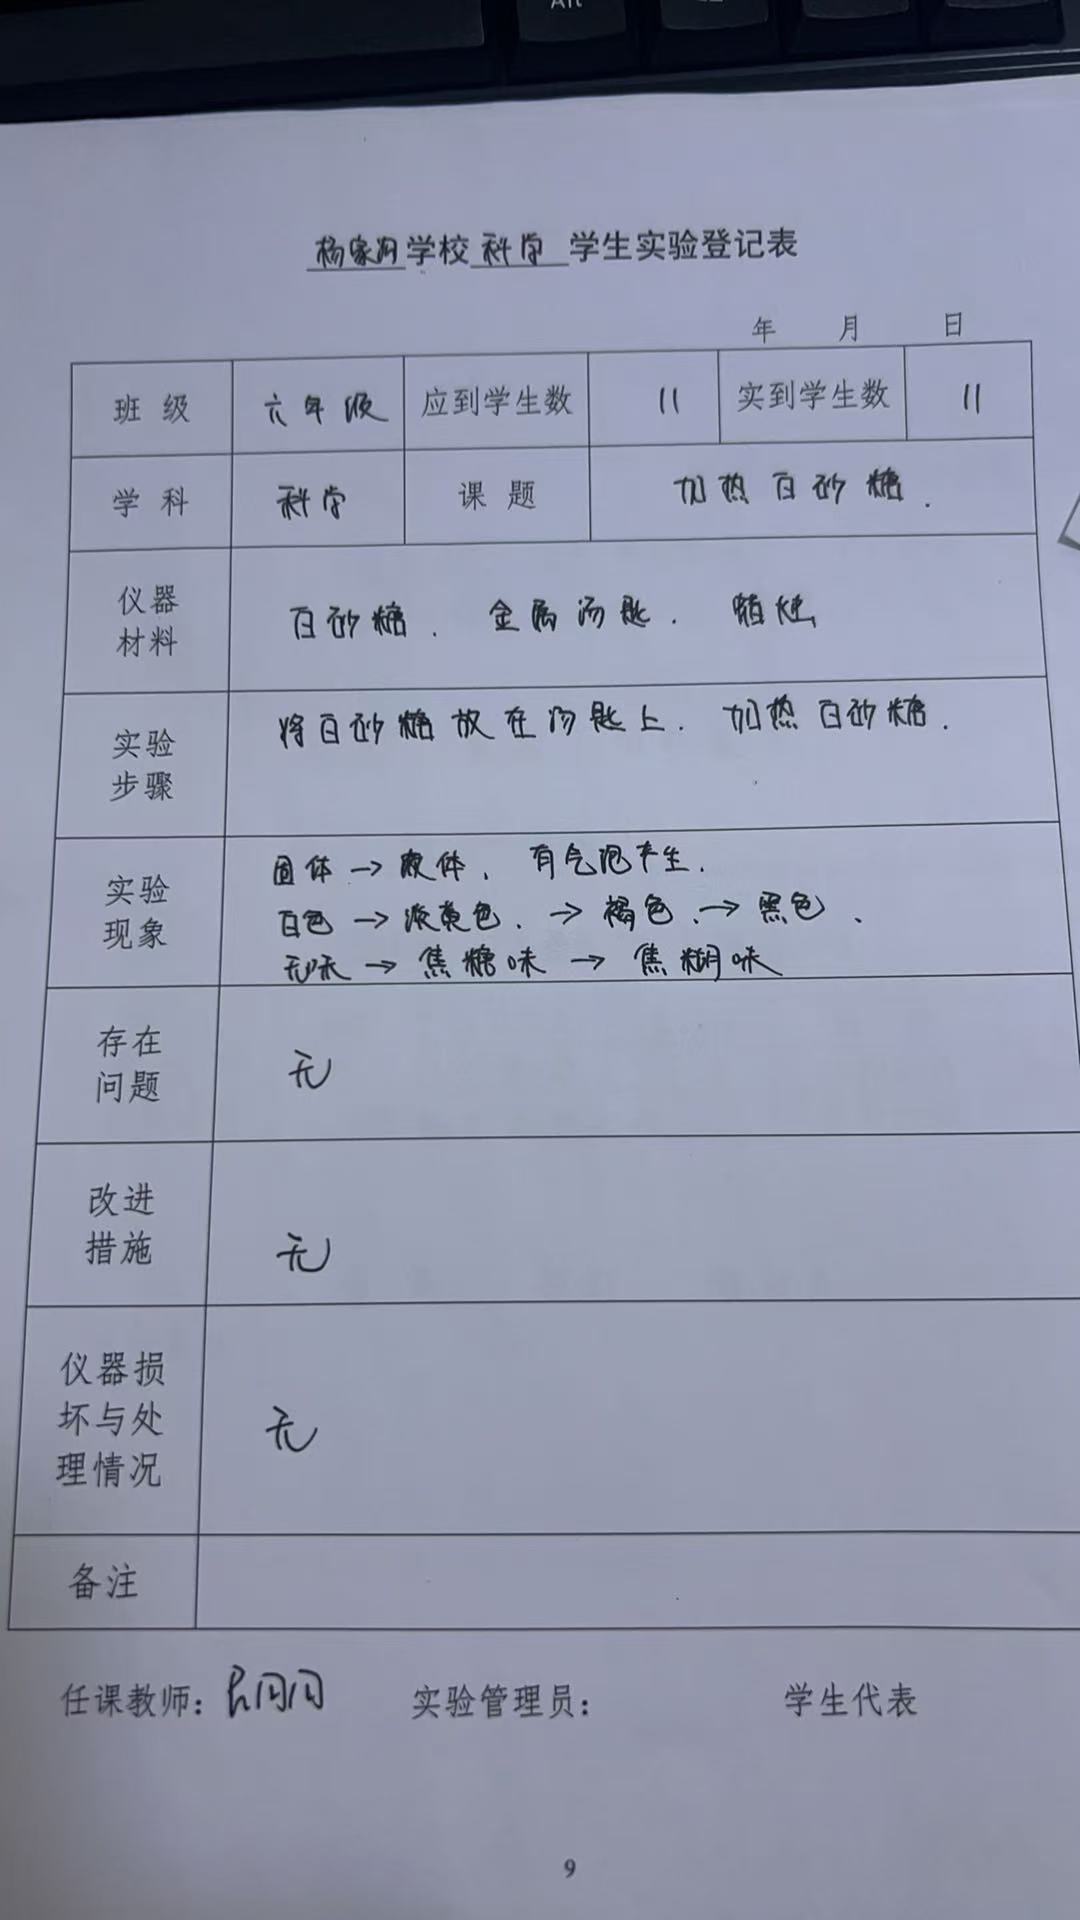 Alt
杨家沟学校 科学 学生实验登记表
年 月 日
班 级 六年级 应到学生数 11 实到学生数 11
学 科 科学 课 题 加热白砂糖.
仪器
材料
白砂糖. 金属汤匙. 蜡烛
实验
步骤
将白砂糖放在汤匙上. 加热白砂糖.
实验
现象
固体→液体, 有气泡产生.
白色→淡黄色.→褐色.→黑色.
无味→焦糖味→焦糊味
存在
问题
无
改进
措施
无
仪器损
坏与处
理情况
无
备注
任课教师: 实验管理员: 学生代表
9